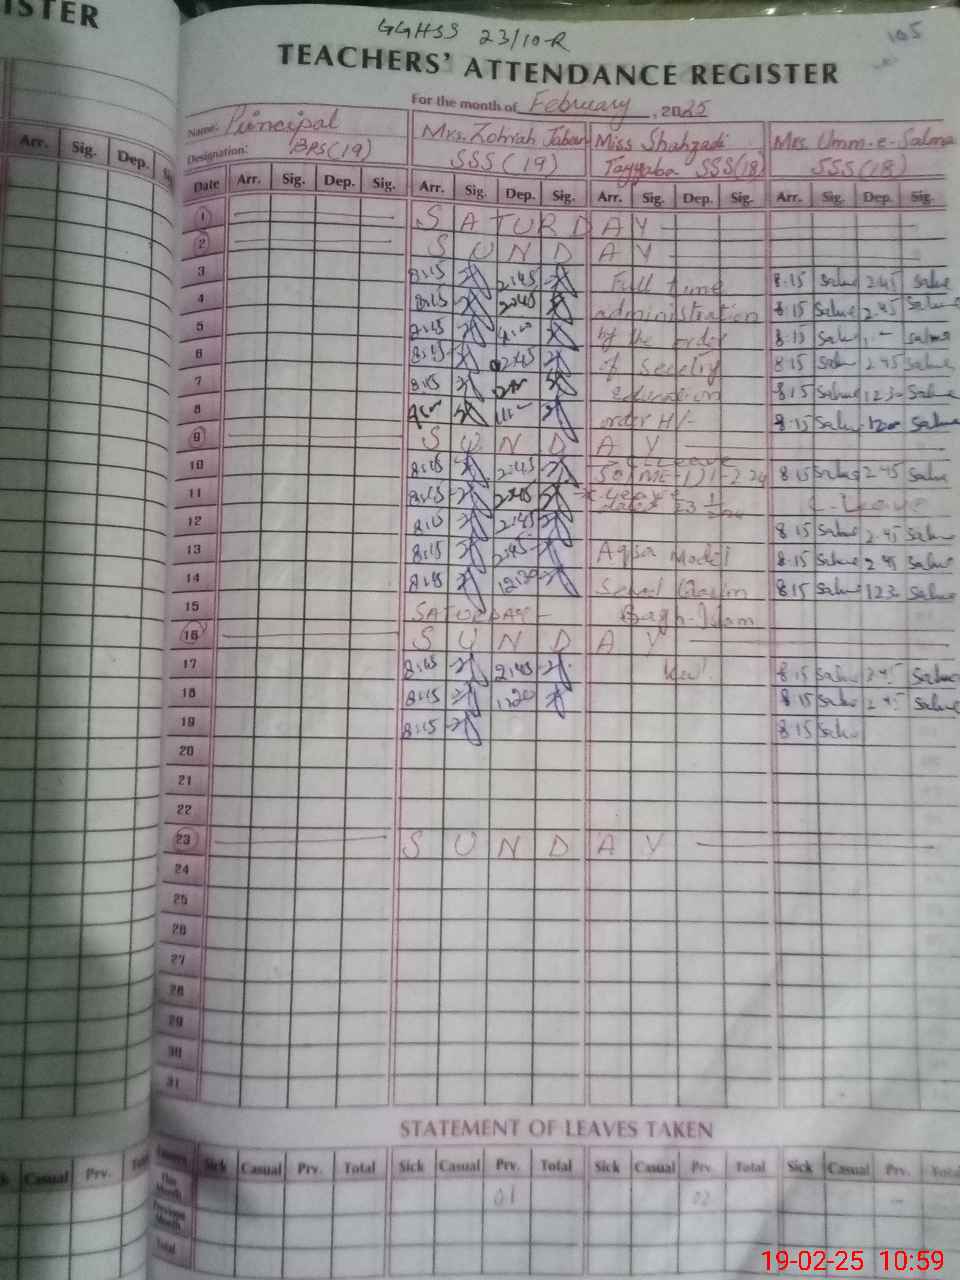 ISTER
GGHSS 23/10-R
105
TEACHERS' ATTENDANCE REGISTER
For the month of February, 2025
Name: Principal Mrs. Zohriah Jabeen Miss Shahzadi Mrs. Umm-e-Salma
Designation: BPS(19) SSS(19) Tayyaba SSS(18) SSS(18)
Arr. Sig. Dep.
Date Arr. Sig. Dep. Sig. Arr. Sig. Dep. Sig. Arr. Sig. Dep. Sig. Arr. Sig. Dep. Sig.
1 SATURDAY
2 SUNDAY
3 8:15 2:45 Full time 8:15 Salma 2:45 Salma
4 8:15 2:45 administration 8:15 Salma 2:45 Salma
5 8:15 by the order 8:15 Salma Salma
6 8:15 2:45 of 8:15 Salma 2:45 Salma
7 8:15 education 8:15 Salma 1230 Salma
8 order H/- 8:15 Salma 1200 Salma
9 SUNDAY
10 8:15 2:45 8:15 Salma 2:45 Salma
11 8:15 2:45 Leave C-Leave
12 8:15 2:45 dated 8:15 Salma 2:45 Salma
13 8:15 2:45 Aqsa Model 8:15 Salma 2:45 Salma
14 8:15 12:30 8:15 Salma 1230 Salma
15 SATURDAY -
16 SUNDAY
17 8:15 2:45 8:15 Salma 2:45 Salma
18 8:15 1:20 8:15 Salma 2:45 Salma
19 8:15 8:15 Salma
20
21
22
23 SUNDAY
24
25
26
27
28
29
30
31
STATEMENT OF LEAVES TAKEN
Casual Prv.
Leaves Sick Casual Prv. Total Sick Casual Prv. Total Sick Casual Prv. Total Sick Casual Prv. Total
This Month 01 02 -
Previous Month
Total
19-02-25 10:59